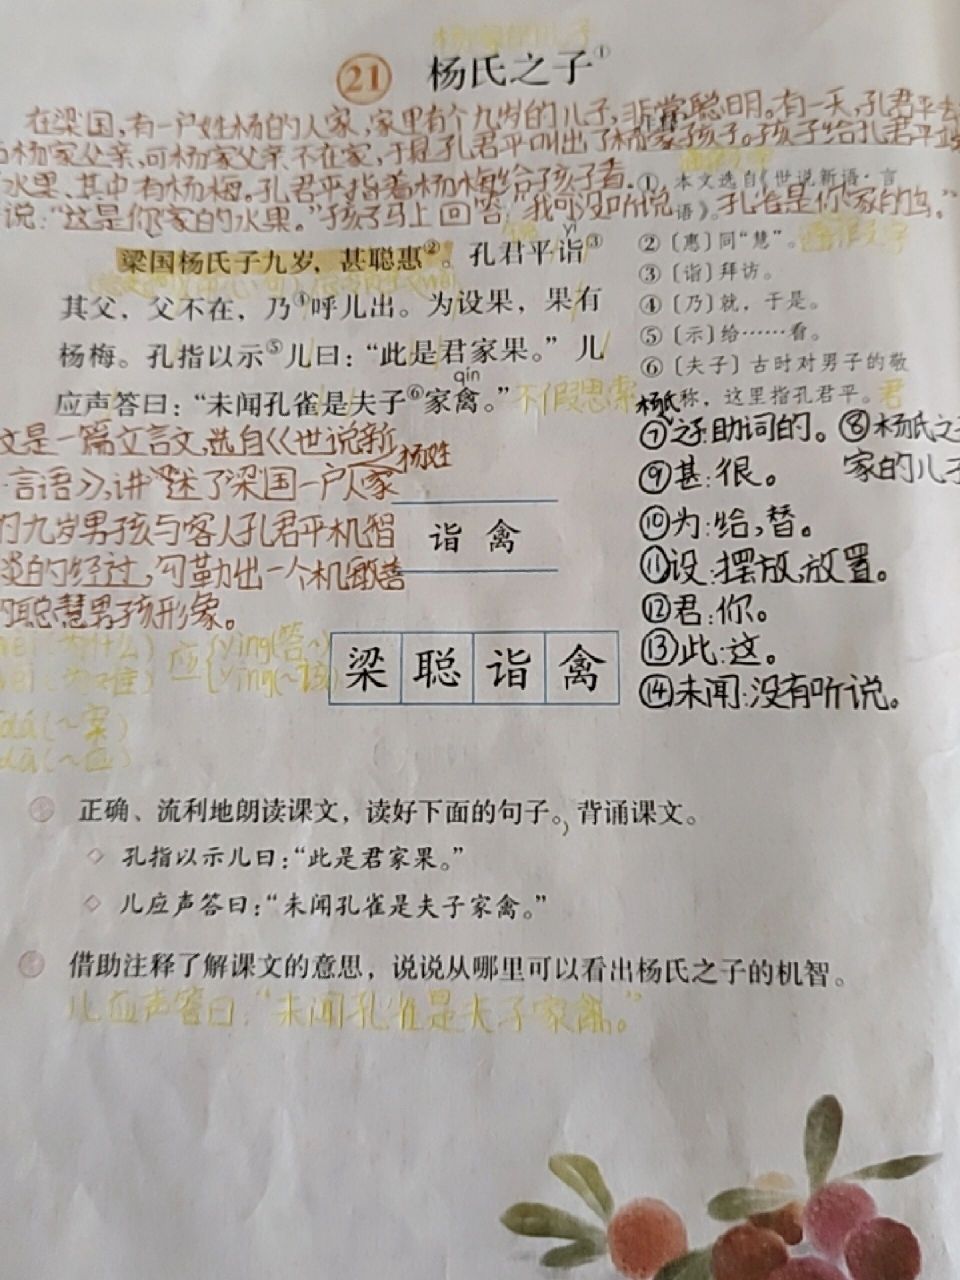 21 杨氏之子①
在梁国,有一户姓杨的人家,家里有个九岁的儿子,非常聪明。有一天,孔君平去
杨家父亲,可杨家父亲不在家,于是孔君平叫出了杨家孩子。孩子给孔君平
水果、其中有杨梅。孔君平指着杨梅给孩子看.
说:“这是你家的水果。”孩子马上回答:“我可没听说孔雀是你家的鸟。”
① 本文选自《世说新语·言
语》。
梁国杨氏子九岁,甚聪惠②。孔君平诣③
yì
其父,父不在,乃④呼儿出。为设果,果有
杨梅。孔指以示⑤儿曰:“此是君家果。”儿
qín
应声答曰:“未闻孔雀是夫子⑥家禽。”
不假思索
② 〔惠〕同“慧”。
③ 〔诣〕拜访。
④ 〔乃〕就,于是。
⑤ 〔示〕给……看。
⑥ 〔夫子〕古时对男子的敬
称,这里指孔君平。君
杨氏
⑦之:助词的。⑧杨氏之子
家的儿子
⑨甚:很。
⑩为:给,替。
⑪设:摆放,放置。
⑫君:你。
⑬此:这。
⑭未闻:没有听说。
文是一篇文言文,选自《世说新
杨姓
言语》,讲述了梁国一户人家
的九岁男孩与客人孔君平机智
谈的经过,勾勒出一个机敏善
的聪慧男孩形象。
诣 禽
梁 聪 诣 禽
(为什么) 应 ying(答~)
ying(~该)
dá(~案)
dā(~应)
正确、流利地朗读课文,读好下面的句子。背诵课文。
◇ 孔指以示儿曰:“此是君家果。”
◇ 儿应声答曰:“未闻孔雀是夫子家禽。”
借助注释了解课文的意思,说说从哪里可以看出杨氏之子的机智。
儿应声答曰:“未闻孔雀是夫子家禽。”